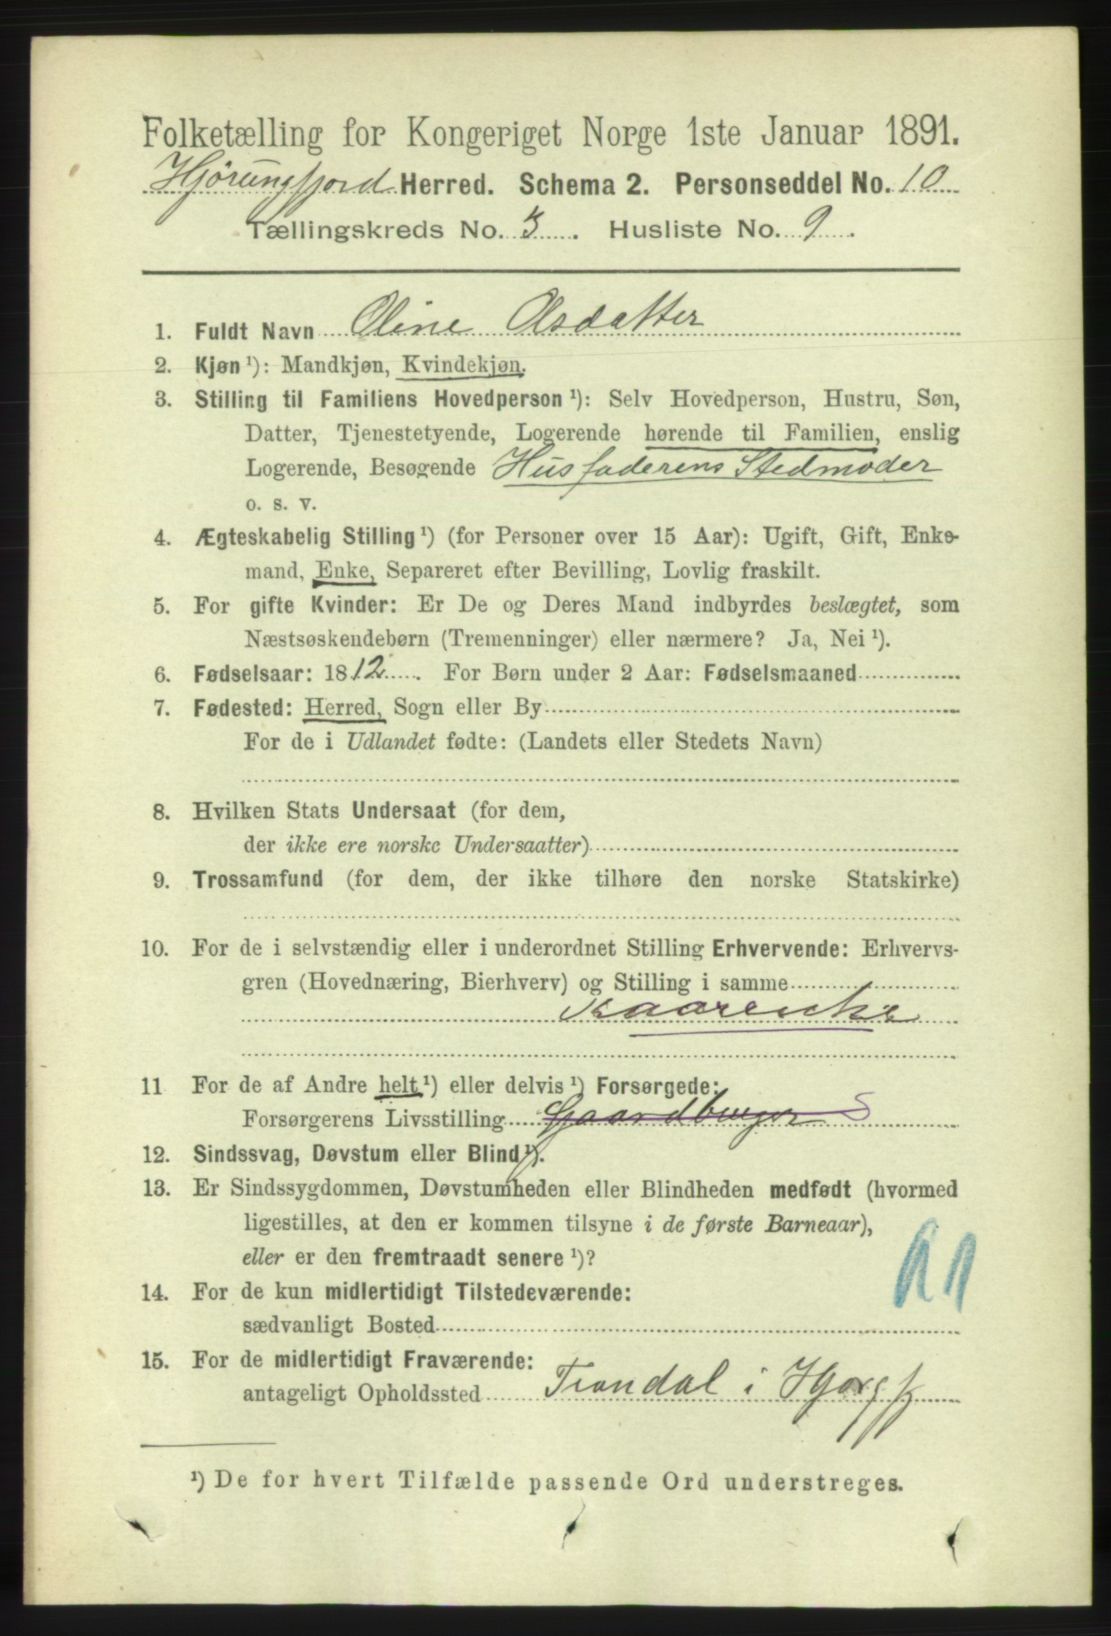 Folketælling for Kongeriget Norge 1ste Januar 1891.
Hjørungfjord Herred. Schema 2. Personseddel No. 10
Tællingskreds No. 3. Husliste No. 9.
1. Fuldt Navn Oline Olsdatter
2. Kjøn ¹): Mandkjøn, Kvindekjøn.
3. Stilling til Familiens Hovedperson ¹): Selv Hovedperson, Hustru, Søn,
Datter, Tjenestetyende, Logerende hørende til Familien, enslig
Logerende, Besøgende Husfaderens Stedmoder
o. s. v.
4. Ægteskabelig Stilling ¹) (for Personer over 15 Aar): Ugift, Gift, Enke-
mand, Enke, Separeret efter Bevilling, Lovlig fraskilt.
5. For gifte Kvinder: Er De og Deres Mand indbyrdes beslægtet, som
Næstsøskendebørn (Tremenninger) eller nærmere? Ja, Nei ¹).
6. Fødselsaar: 1812. For Børn under 2 Aar: Fødselsmaaned
7. Fødested: Herred, Sogn eller By
For de i Udlandet fødte: (Landets eller Stedets Navn)
8. Hvilken Stats Undersaat (for dem,
der ikke ere norske Undersaatter)
9. Trossamfund (for dem, der ikke tilhøre den norske Statskirke)
10. For de i selvstændig eller i underordnet Stilling Erhvervende: Erhvervs-
gren (Hovednæring, Bierhverv) og Stilling i samme
Kaarenke
11 For de af Andre helt ¹) eller delvis ¹) Forsørgede:
Forsørgerens Livsstilling Gaardbruger S
12. Sindssvag, Døvstum eller Blind ¹).
13. Er Sindssygdommen, Døvstumheden eller Blindheden medfødt (hvormed
ligestilles, at den er kommen tilsyne i de første Barneaar),
eller er den fremtraadt senere ¹)?
14. For de kun midlertidigt Tilstedeværende:
sædvanligt Bosted
15. For de midlertidigt Fraværende:
antageligt Opholdssted Trandal i
¹) De for hvert Tilfælde passende Ord understreges.